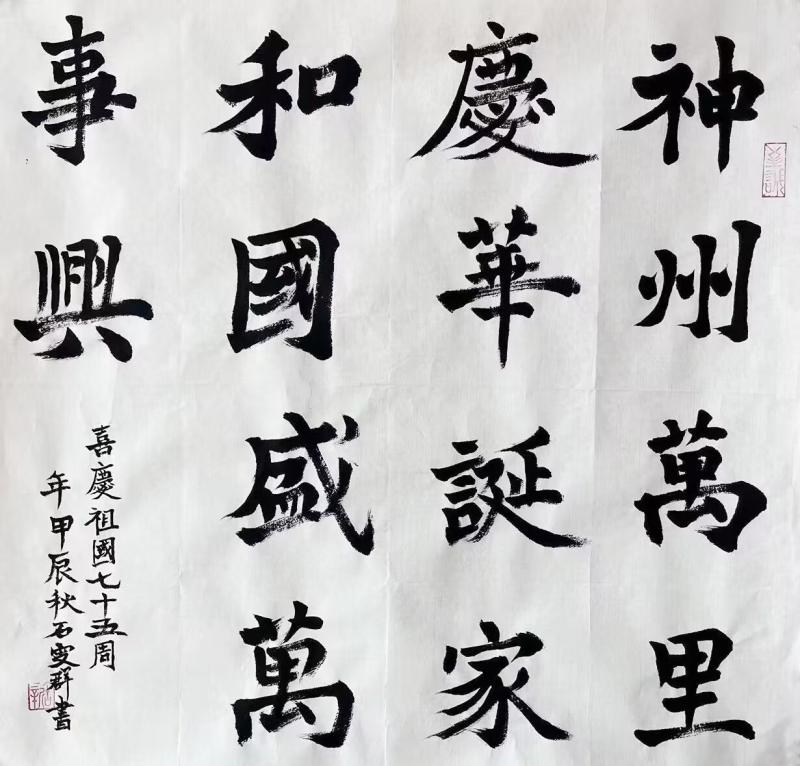 神州萬里
慶華誕家
和國盛萬
事興
喜慶祖國七十五周
年甲辰秋石雯群書